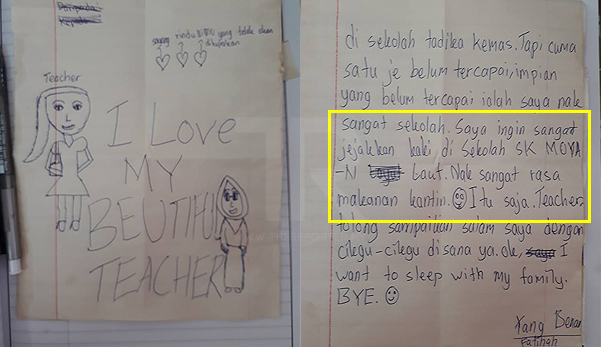 Daripada:
Kepada:
sayang rindu dan yang tidak akan
dilupakan
Teacher
I LOVE
MY
BEUTIFUL
TEACHER
di sekolah tadika kemas. Tapi cuma
satu je belum tercapai, impian
yang belum tercapai ialah saya nak
sangat sekolah. Saya ingin sangat
jejakkan kaki di Sekolah SK MOYA
-N Laut. Nak sangat rasa
makanan kantin. Itu saja. Teacher
tolong sampaikan salam saya dengan
cikgu-cikgu disana ya. ok, I
want to sleep with my family.
BYE.
Yang Benar
Fatihah